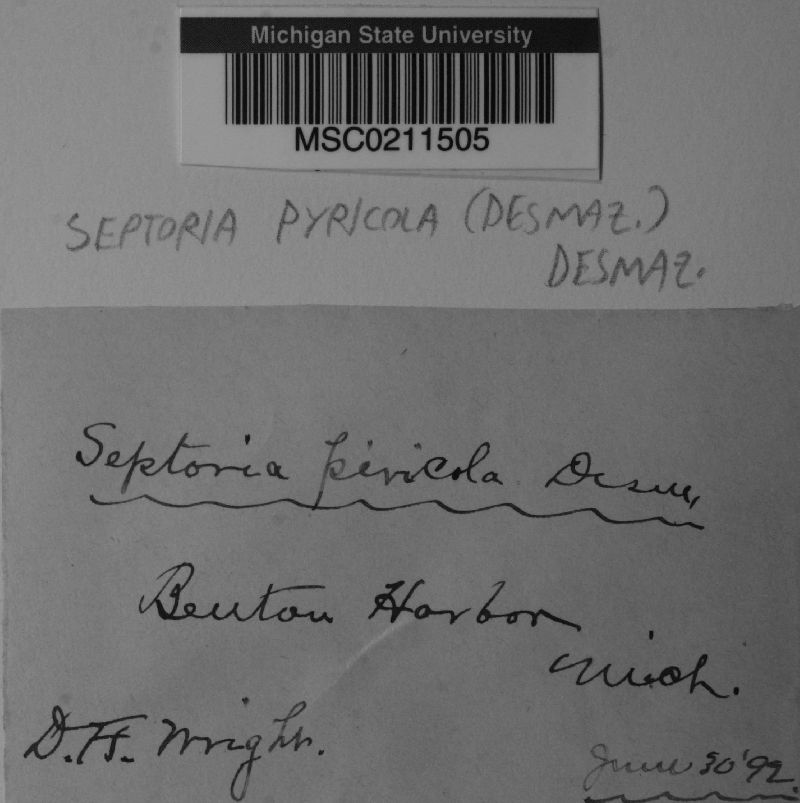 Michigan State University
MSC0211505
SEPTORIA PYRICOLA (DESMAZ.)
DESMAZ.
Septoria piricola Desm.
Benton Harbor
Mich.
D. H. Wright.
June 30 '92